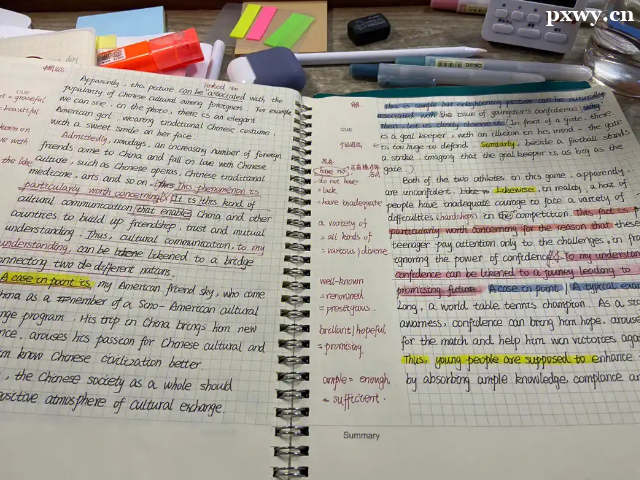 pxwy.cn
cue
= beautiful
linked to
Apparently, this picture can be associated with the
popularity of Chinese cultural among foreigners. For example
we can see, in the photo, there is an elegant
American girl, wearing traditional Chinese costume
with a sweet smile on her face.
Admittedly, nowdays, an increasing number of foreign
friends come to China and fall in love with Chinese
culture, such as Chinese operas, Chinese traditional
medicine, arts and so on. This This phenomenon is
particularly worth concerning. It is this kind of
cultural communication that enables China and other
countries to build up friendship, trust and mutual
understanding. Thus, cultural communication, to my
understanding, can be likene likened to a bridge
connecting two de different nations.
A case in point is, my American friend sky, who come
China as a member of a Sono-American cultural
program. His trip in China brings him new
arouses his passion for Chinese cultural and
know Chinese civilization better.
, the Chinese society as a whole should
positive atmosphere of cultural exchange.
cue
have no
do not have
= lack
= have inadequate
a variety of
= all kinds of
= various / diverse
well-known
= renowned
= prestigious
brilliant / hopeful
= promising
ample = enough
= sufficient
This is simple but enlightening picture can be naturally
associated with the issue of youngster's confidence,
In front of a gate, there
is a goal keeper, with an illusion in his mind - the goal
is too huge to defend. Similarly, beside a football stands
a strike, imagining that the goal keeper is as big as the
gate.
Both of the two athletes in this game, apparently,
are unconfident. Like Likewise, in reality, a host of
people have inadequate courage to face a variety of
difficulties (hardships) in the competition. This fact is
particularly worth concerning for the reason that these
teenager pay attention only to the challenges, in
ignoring the power of confidence. To my understand
confidence can be likened to a journey leading to
promising future. A case in point A typical exam
Long, a world table tennis champion. As a
awareness, confidence can bring him hope, arouse
for the match and help him win victories again
Thus, young people are supposed to enhance
by absorbing ample knowledge, compliance
Summary